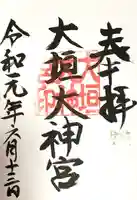 奉拝
大垣大神宮
令和元年六月十二日